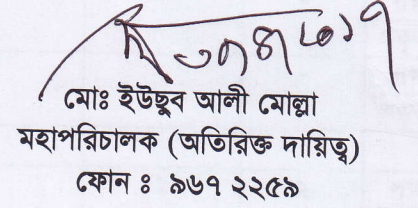 মোঃ ইউছুব আলী মোল্লা
মহাপরিচালক (অতিরিক্ত দায়িত্ব)
ফোন ঃ ৯৬৭ ২২৫৯